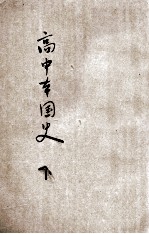 高中本国史
下